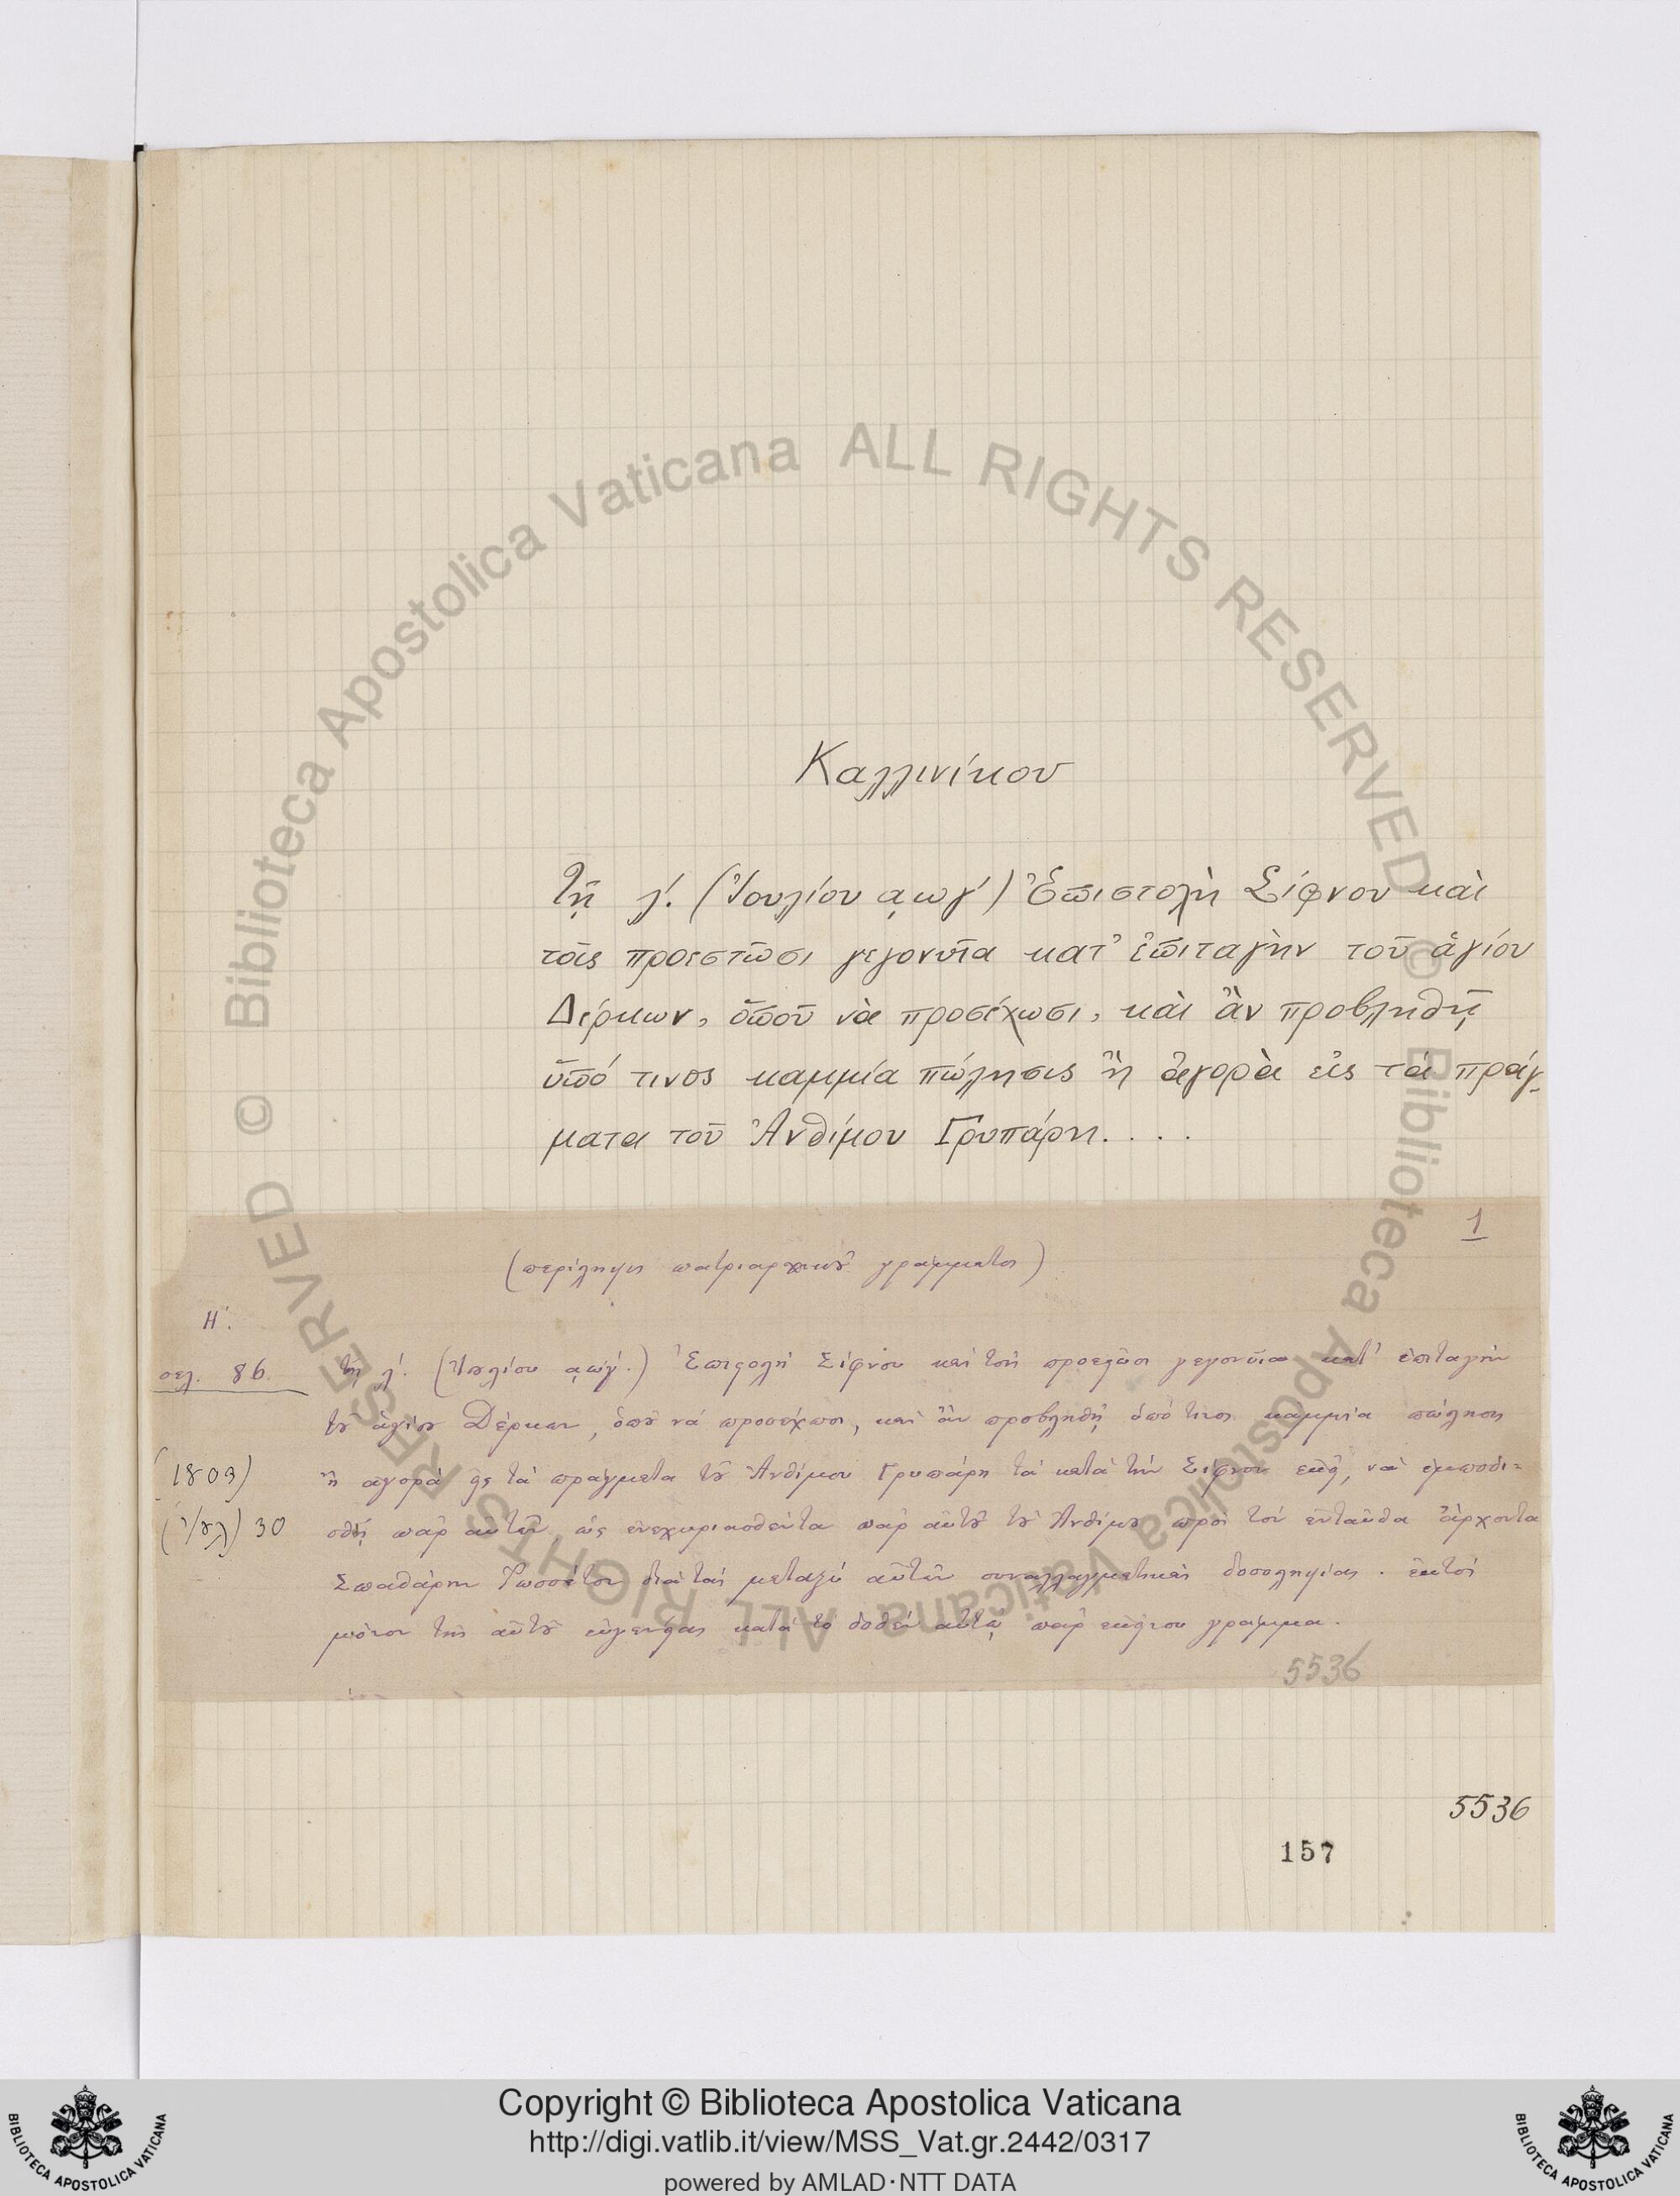 Καλλινίκου
Τῇ λ΄. (Ἰουλίου ͵αωγ΄) Ἐπιστολὴ Σίφνου καὶ
τοῖς προεστῶσι γεγονυῖα κατ' ἐπιταγὴν τοῦ ἁγίου
Δέρκων, ὅπου νὰ προσέχωσι, καὶ ἂν προβληθῇ
ὑπό τινος καμμία πώλησις ἢ ἀγορὰ εἰς τὰ πράγ-
ματα τοῦ Ἀνθίμου Γρυπάρη....
1
(περίληψις πατριαρχικοῦ γράμματος)
Η΄.
σελ. 86. τῇ λ΄. (Ἰουλίου ͵αωγ΄.) Ἐπιστολὴ Σίφνου καὶ τοῖς προεστῶσι γεγονυῖα κατ' ἐπιταγὴν
τοῦ ἁγίου Δέρκων, ὅπου νά προσέχωσι, καὶ ἂν προβληθῇ ὑπό τινος καμμία πώλησις
(1803) ἢ ἀγορὰ εἰς τὰ πράγματα τοῦ Ἀνθίμου Γρυπάρη τὰ κατὰ τὴν Σίφνον ἐκεῖ, νὰ ἐμποδι-
(Ἰουλ) 30 σθῇ παρ' αὐτῶν, ὡς ἐνεχυριασθέντα παρ' αὐτοῦ τοῦ Ἀνθίμου πρὸς τὸν ἐνταῦθα ἄρχοντα
Σπαθάρην Ῥωσσέτον διὰ τὰς μεταξὺ αὐτῶν συναλλαγματικὰς δοσοληψίας. ἐκτὸς
μόνον τῆς αὐτοῦ εὐγενείας κατὰ τὸ δοθὲν αὐτῷ παρ' ἐκείνου γράμμα.
5536
5536
157
© Biblioteca Apostolica Vaticana ALL RIGHTS RESERVED
© Biblioteca Apostolica Vaticana ALL RIGHTS RESERVED
Copyright © Biblioteca Apostolica Vaticana
http://digi.vatlib.it/view/MSS_Vat.gr.2442/0317
powered by AMLAD·NTT DATA
BIBLIOTECA APOSTOLICA VATICANA
BIBLIOTECA APOSTOLICA VATICANA